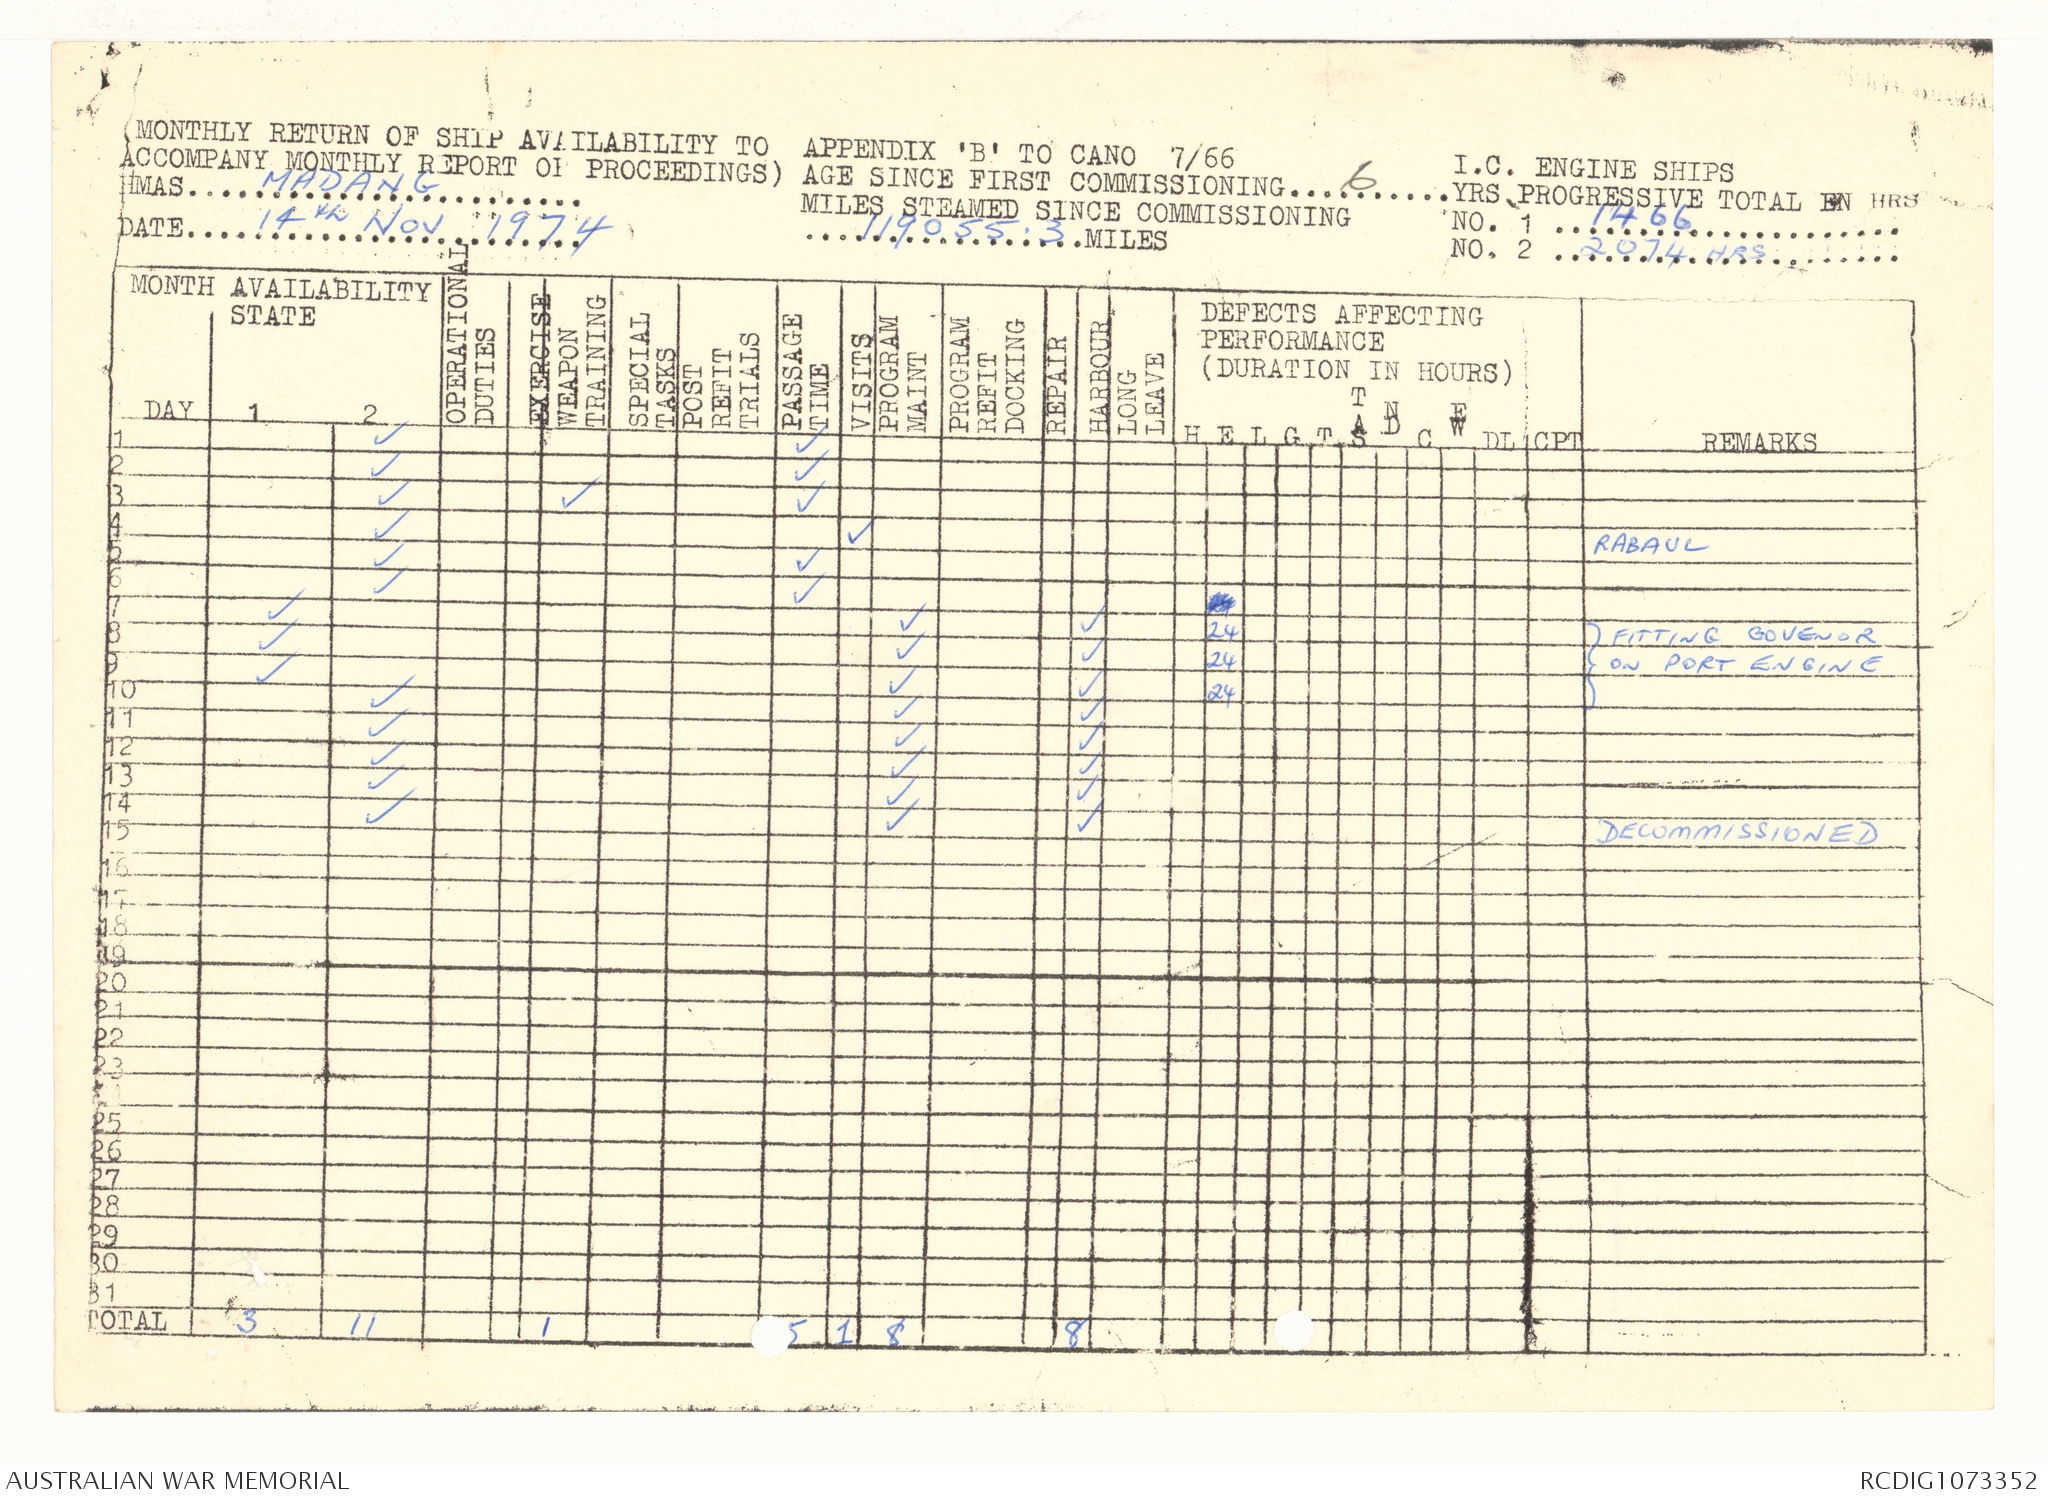 MONTHLY RETURN OF SHIP AVAILABILITY TO
ACCOMPANY MONTHLY REPORT OF PROCEEDINGS)
HMAS.....MADANG.....
DATE.....14th Nov 1974
APPENDIX 'B' TO CANO 7/66
AGE SINCE FIRST COMMISSIONING....6.......YRS
MILES STEAMED SINCE COMMISSIONING
.....119055.3....MILES
I.C. ENGINE SHIPS
PROGRESSIVE TOTAL EN HRS
NO. 1 .....1466.....
NO. 2 .....2074 HRS.....
MONTH AVAILABILITY
STATE
DAY 1 2
OPERATIONAL
DUTIES
EXERCISE
WEAPON
TRAINING
SPECIAL
TASKS
POST
REFIT
TRIALS
PASSAGE
TIME
VISITS
PROGRAM
MAINT
PROGRAM
REFIT
DOCKING
REPAIR
HARBOUR
LONG
LEAVE
DEFECTS AFFECTING
PERFORMANCE
(DURATION IN HOURS)
H E L G T TAS ND C EW DL CPT
REMARKS
1 ✓ ✓
2 ✓ ✓
3 ✓ ✓ ✓
4 ✓ ✓ RABAUL
5 ✓ ✓
6 ✓ ✓
7 ✓ ✓ ✓ 24 FITTING GOVENOR
8 ✓ ✓ ✓ 24 ON PORT ENGINE
9 ✓ ✓ ✓ 24
10 ✓ ✓ ✓
11 ✓ ✓ ✓
12 ✓ ✓ ✓
13 ✓ ✓ ✓
14 ✓ ✓ ✓ DECOMMISSIONED
15
16
17
18
19
20
21
22
23
25
26
27
28
29
30
31
TOTAL 3 11 1 5 1 8 8
AUSTRALIAN WAR MEMORIAL
RCDIG1073352